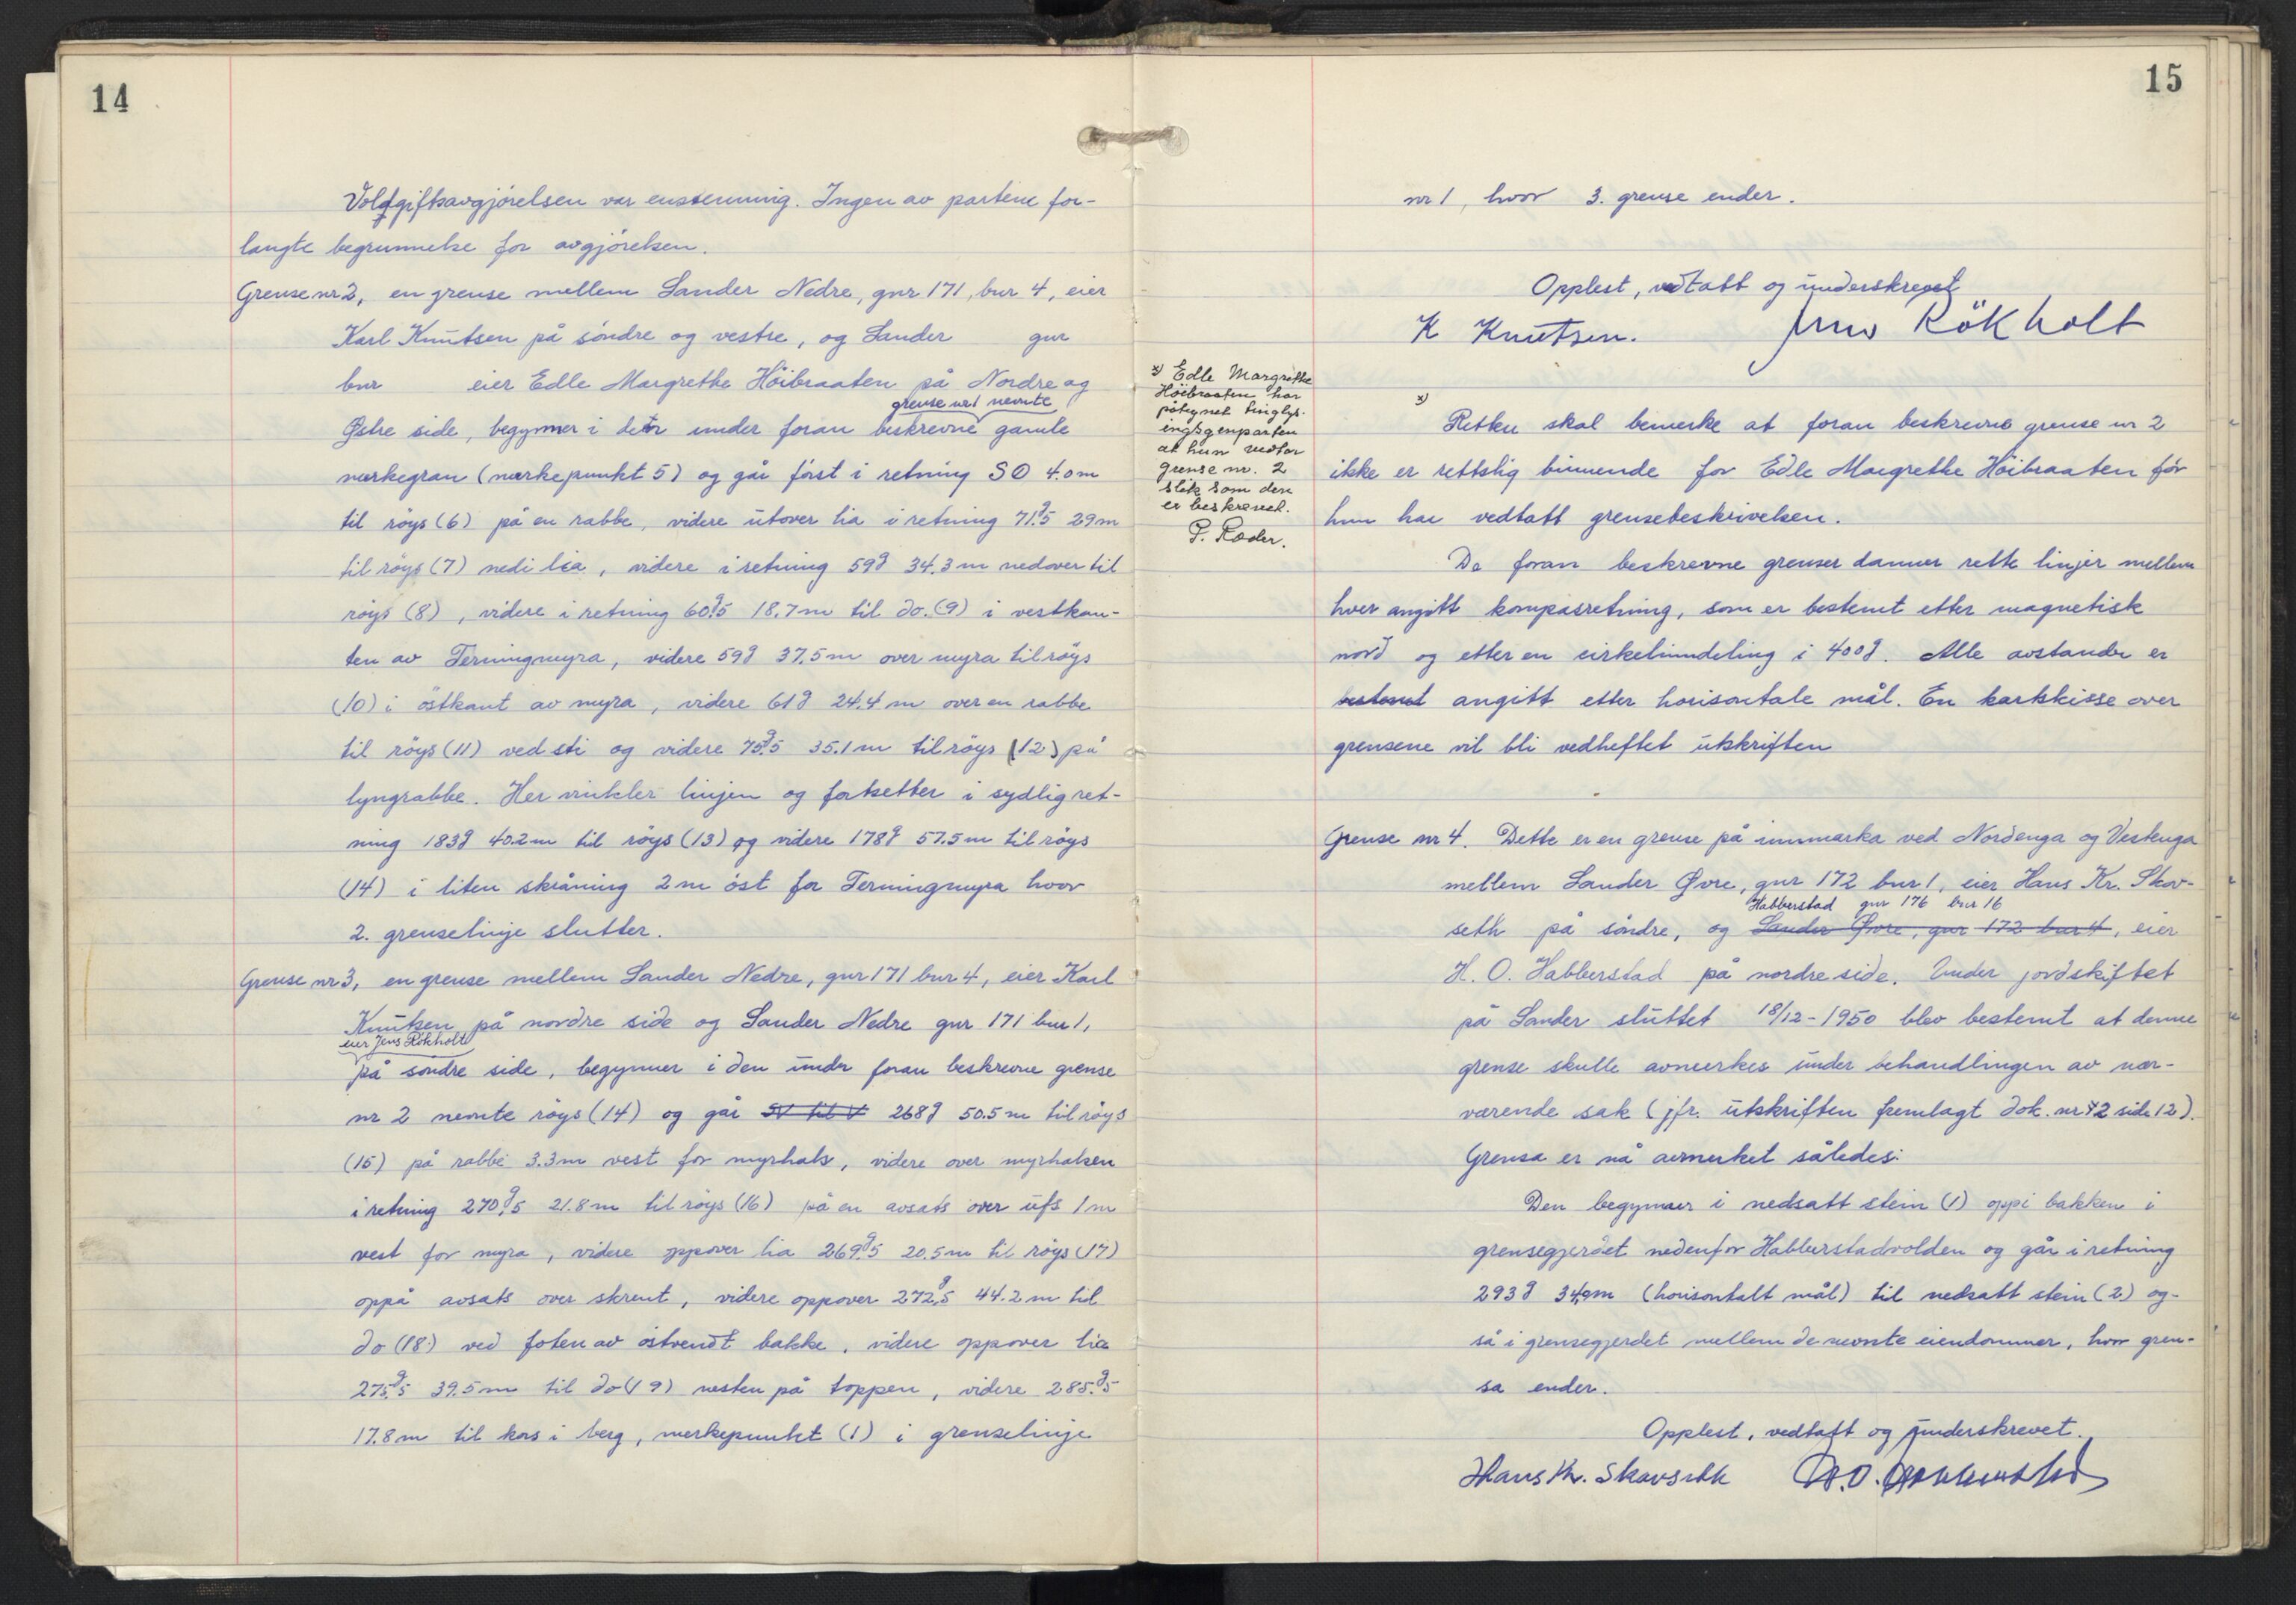 14
Voldgiftsavgjörelsen var enstemmig. Ingen av partene for-
langte begrunnelse for avgjörelsen.
Grense nr 2, en grense mellem Sander Nedre, gnr 171, bnr 4, eier
Karl Knutsen på söndre og vestre, og Sander gnr
bnr eier Edle Margrethe Höibraaten på Nordre og
grense nr 1 nevnte
Østre side, begynner i den under foran beskrevne gamle
merkegran (merkepunkt 5) og går först i retning SO 4.0m
til röys (6) på en rabbe, videre utover lia i retning 71g.5 29m
til röys (7) nedi lia, videre i retning 59g 34.3m nedover til
röys (8), videre i retning 60g.5 18.7m til do. (9) i vestkan-
ten av Terningmyra, videre 59g 37.5m over myra til röys
(10) i östkant av myra, videre 61g 24.4m over en rabbe
til röys (11) ved sti og videre 75g.5 35.1m til röys (12) på
lyngrabbe. Her vinkler linjen og fortsetter i sydlig ret-
ning 183g 40.2m til röys (13) og videre 178g 57.5m til röys
(14) i liten skråning 2m öst for Terningmyra hvor
2. grenselinje slutter.
Grense nr 3, en grense mellem Sander Nedre, gnr 171 bnr 4, eier Karl
Knutsen på nordre side og Sander Nedre gnr 171 bnr 1,
eier Jens Rökholt
på söndre side, begynner i den under foran beskrevne grense
nr 2 nevnte röys (14) og går SV til V 268g 50.5m til röys
(15) på rabbe 3.3m vest for myrhals, videre over myrhalsen
i retning 270g.5 21.8m til röys (16) på en avsats over ufs 1m
vest for myra, videre oppover lia 269g.5 20.5m til röys (17)
oppå avsats over skrent, videre oppover 272g.5 44.2m til
do (18) ved foten av östvendt bakke, videre oppover lia
275g.5 39.5m til do (19) nesten på toppen, videre 285g.5
17.8m til kors i berg, merkepunkt (1) i grenselinje
15
nr 1, hvor 3. grense ender.
Opplest, vedtatt og underskrevet
K Knutsen. Jens Rökholt
x) Edle Margrethe
Höibraaten har
påtegnet tinglys-
ingsgenparten
at hun vedtar
grense nr. 2
slik som den
er beskrevet.
P. Røder.
x)
Retten skal bemerke at foran beskrevne grense nr 2
ikke er rettslig binnende for Edle Margrethe Höibraaten för
hun har vedtatt grensebeskrivelsen.
De foran beskrevne grenser danner rette linjer mellem
hver angitt kompasretning, som er bestemt etter magnetisk
nord og etter en cirkelinndeling i 400g. Alle avstander er
bestemt angitt etter horisontale mål. En kartskisse over
grensene vil bli vedheftet utskriften
Grense nr 4. Dette er en grense på innmarka ved Nordenga og Vestenga
mellem Sander Øvre, gnr 172 bnr 1, eier Hans Kr. Skav-
Habberstad gnr 176 bnr 16
seth på söndre, og Sander Øvre, gnr 172 bnr 4, eier
H. O. Habberstad på nordre side. Under jordskiftet
på Sander sluttet 18/12-1950 blev bestemt at denne
grense skulle avmerkes under behandlingen av nær-
værende sak (jfr. utskriften fremlagt dok. nr 2 side 12).
Grensa er nå avmerket således:
Den begynner i nedsatt stein (1) oppi bakken i
grensegjerdet nedenfor Habberstadvolden og går i retning
293g 34,0m (horisontalt mål) til nedsatt stein (2) og-
så i grensegjerdet mellem de nevnte eiendommer, hvor gren-
sa ender.
Opplest, vedtatt og underskrevet.
Hans Kr. Skavseth H.O. Habberstad